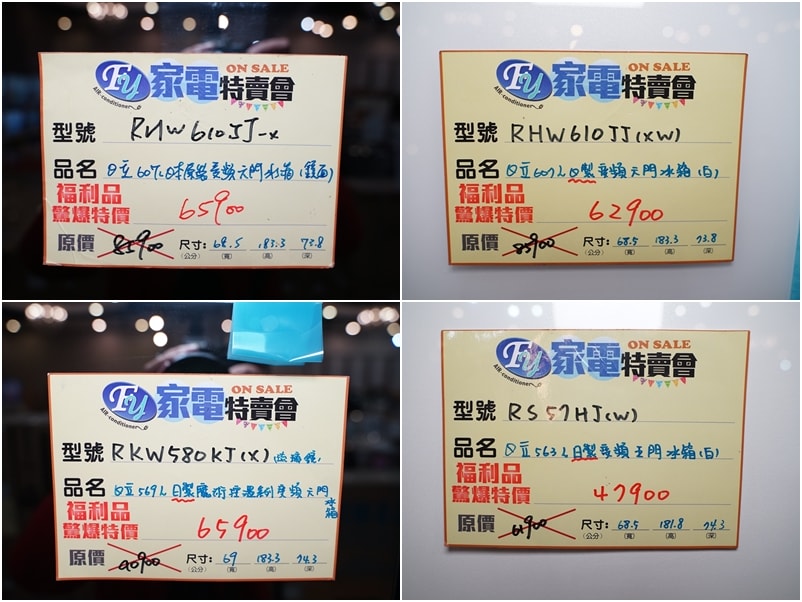 Fu
AIR-conditioner
家電特賣會
ON SALE
型號 RHW610JJ-X
品名 日立607L日本原裝變頻六門冰箱(鏡面)
福利品
驚爆特價 65900
原價 85900 尺寸: 68.5 183.3 73.8
(公分) (寬) (高) (深)
Fu
AIR-conditioner
家電特賣會
ON SALE
型號 RHW610JJ(XW)
品名 日立607L日製變頻六門冰箱(白)
福利品
驚爆特價 62900
原價 85900 尺寸: 68.5 183.3 73.8
(公分) (寬) (高) (深)
Fu
AIR-conditioner
家電特賣會
ON SALE
型號 RKW580KJ(X) 琉璃鏡
品名 日立569L日製魔術控溫系列變頻六門冰箱
福利品
驚爆特價 65900
原價 90900 尺寸: 69 183.3 74.3
(公分) (寬) (高) (深)
Fu
AIR-conditioner
家電特賣會
ON SALE
型號 RS57HJ(W)
品名 日立563L日製變頻五門冰箱(白)
福利品
驚爆特價 47900
原價 61900 尺寸: 68.5 181.8 74.3
(公分) (寬) (高) (深)